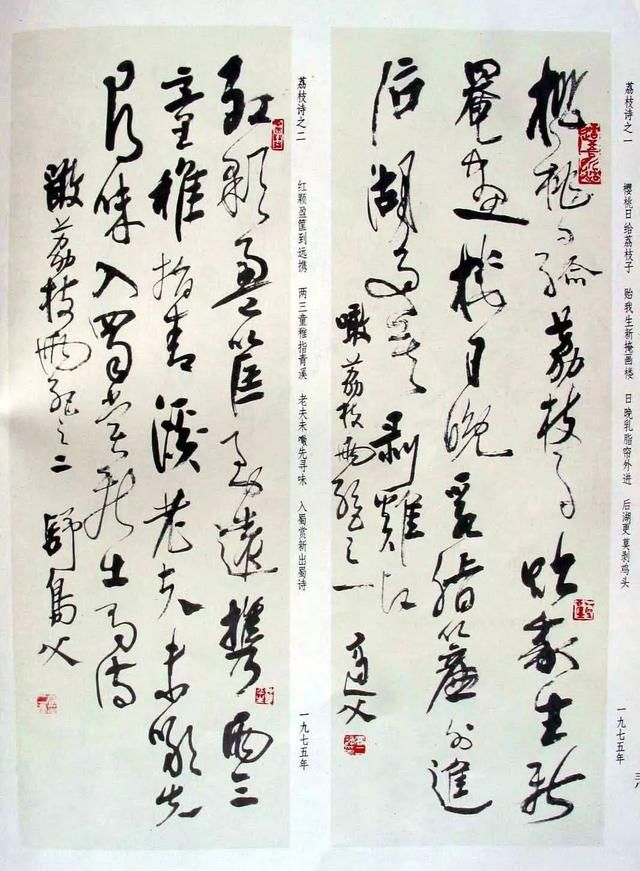 荔枝诗之一 樱桃日给荔枝子 贻我生新掩画楼 日晚乳脂帘外进 后湖更莫剥鸡头 一九七五年
三八
櫻桃日给荔枝子贻我生新
罨画樓日晚乳脂簾外進
后湖更莫剥雞头
噉荔枝兩絕之一
荔枝诗之二 红颗盈筐到远携 两三童稚指青溪 老夫未噉先寻味 入蜀赏新出蜀诗 一九七五年
红颗盈筐到遠攜兩三
童稚指青溪老夫未噉先
寻味入蜀赏新出蜀诗
噉荔枝兩絕之二 舒